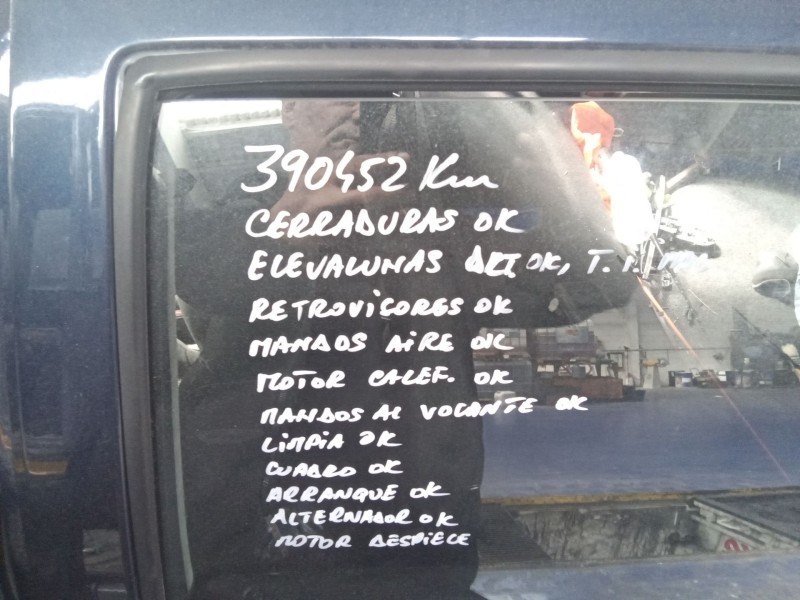 390452 Km
CERRADURAS OK
ELEVALUNAS OK, T.
RETROVISORES OK
MANDOS AIRE OK
MOTOR CALEF. OK
MANDOS AL VOLANTE OK
LIMPIA OK
CUADRO OK
ARRANQUE OK
ALTERNADOR OK
MOTOR DESPIECE